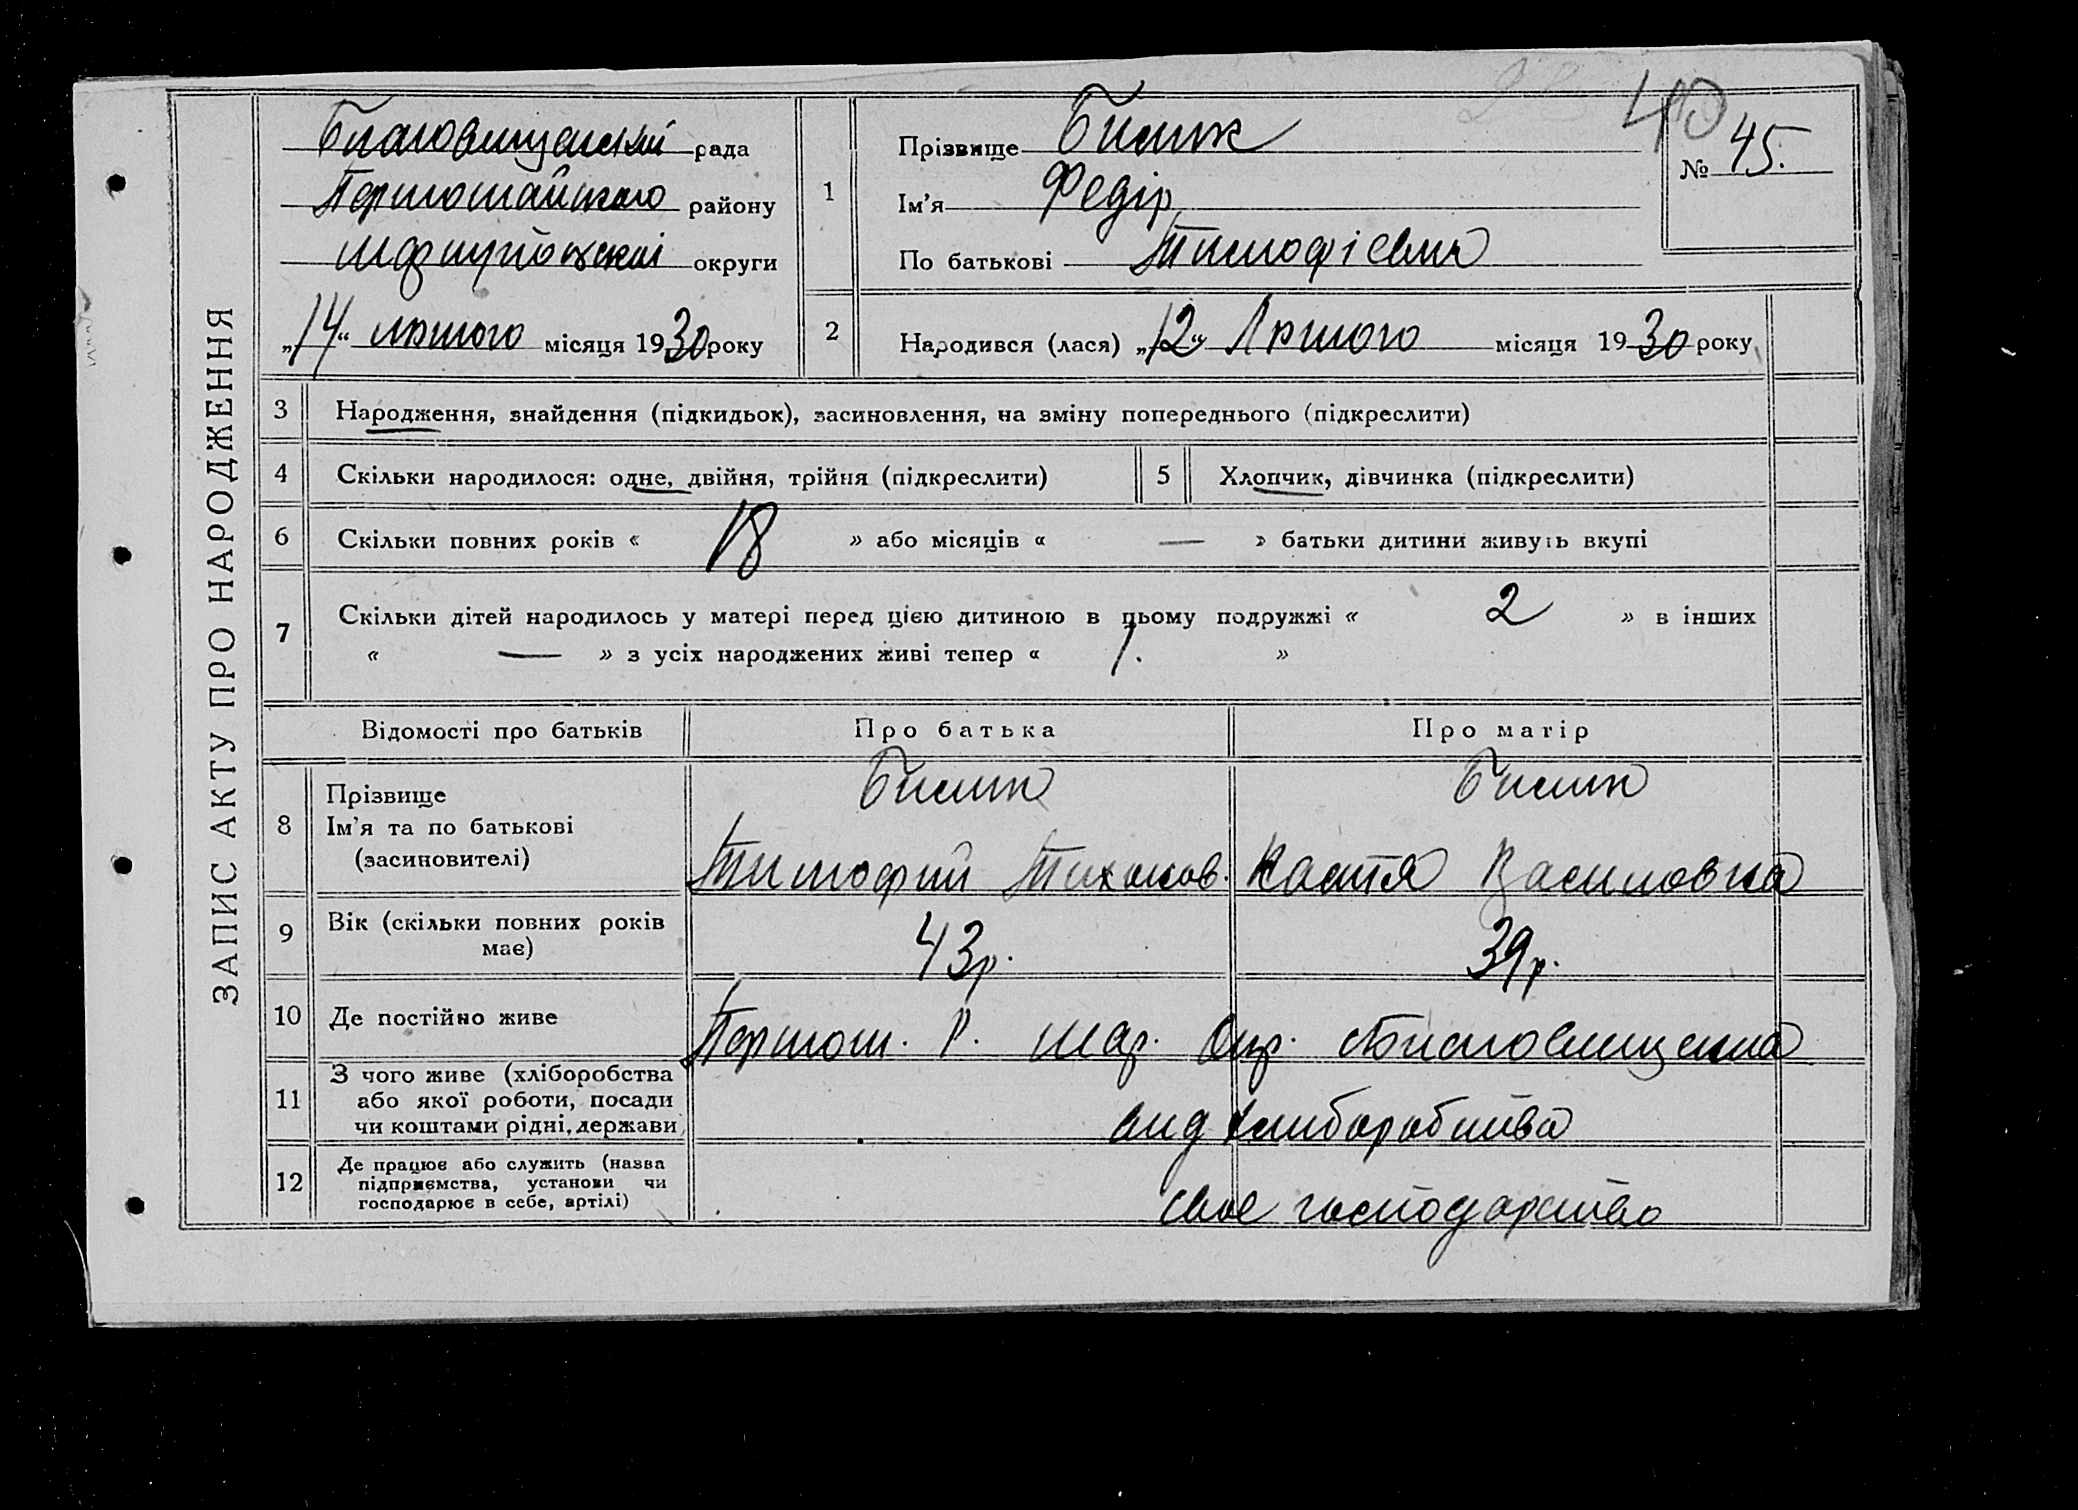 ЗАПИС АКТУ ПРО НАРОДЖЕННЯ
40
№ 45.
рада
району
округи
„14“ лютого місяця 1930 року
1
Прізвище Билик
Ім’я Федір
По батькові
2 Народився (лася) „12“ Лютого місяця 1930 року
3 Народження, знайдення (підкидьок), засиновлення, на зміну попереднього (підкреслити)
4 Скільки народилося: одне, двійня, трійня (підкреслити)
5 Хлопчик, дівчинка (підкреслити)
6 Скільки повних років « 18 » або місяців « — » батьки дитини живуть вкупі
7 Скільки дітей народилось у матері перед цією дитиною в цьому подружжі « 2 » в інших
« — » з усіх народжених живі тепер « 1. »
Відомості про батьків Про батька Про матір
8 Прізвище
Ім’я та по батькові
(засиновителі)
Билик
Тимофий Тихонов.
Билик
Настя Василовна
9 Вік (скільки повних років
має)
43р.
39р.
10 Де постійно живе
Р. Окр.
11 З чого живе (хліборобства
або якої роботи, посади
чи коштами рідні, держави)
вид хлиборобства
12 Де працює або служить (назва
підприємства, установи чи
господарює в себе, артілі)
свое господарство